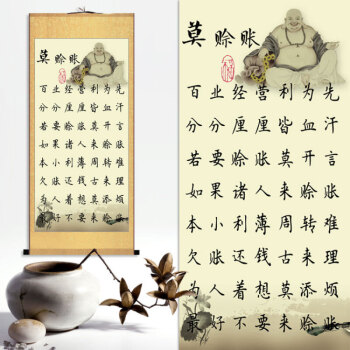 莫赊账
百业经营利为先
分分厘厘皆血汗
若要赊账莫开言
如果诸人来赊账
本小利薄周转难
欠账还钱古来理
为人着想莫添烦
最好不要来赊账
莫赊账
百业经营利为先
分分厘厘皆血汗
若要赊账莫开言
如果诸人来赊账
本小利薄周转难
欠账还钱古来理
为人着想莫添烦
最好不要来赊账